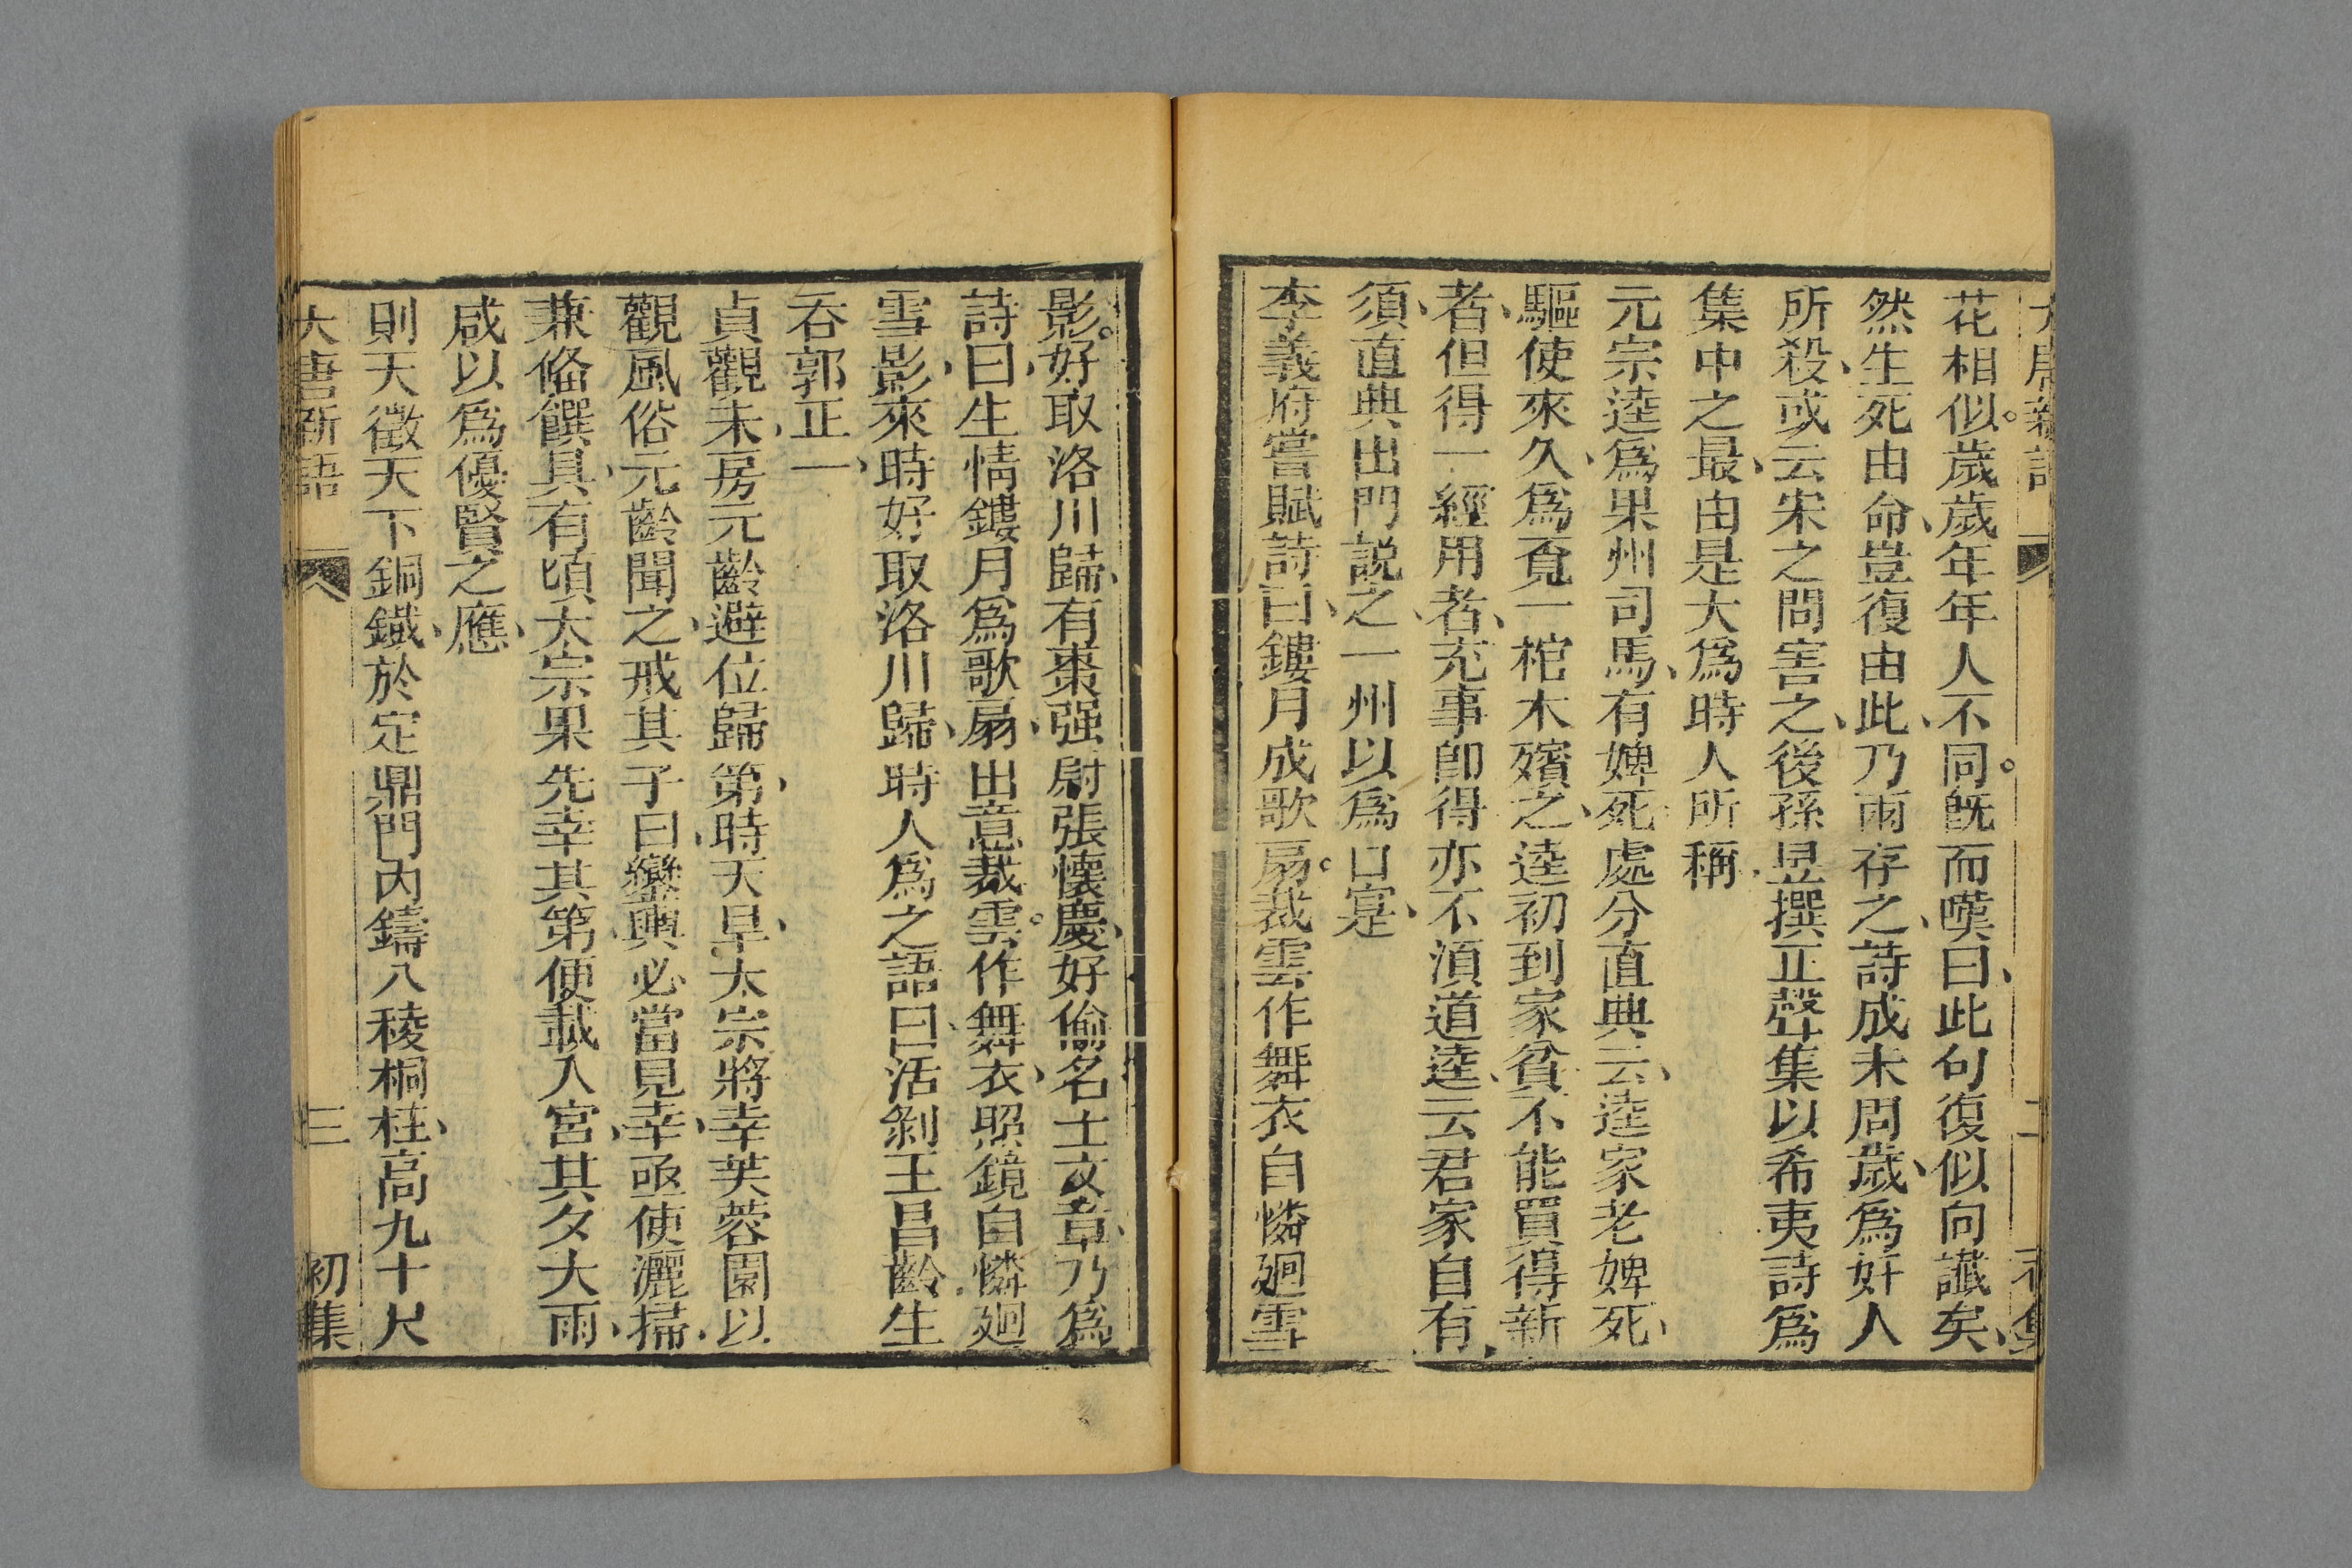 大唐新語 二 初集
花相似。歲歲年年人不同。旣而嘆曰、此句復似向讖矣、
然生死由命、豈復由此、乃兩存之、詩成未周歲、爲奸人
所殺、或云宋之問害之、後孫昱撰正聲集以希夷詩爲
集中之最、由是大爲時人所稱
元宗逵爲果州司馬、有婢死處分直典云、逵家老婢死、
驅使來久、爲覓一棺木殯之、逵初到家貧不能買得新
者、但得一經用者、充事卽得亦不湏道逵、云君家自有、
須、直典出門説之、一州以爲口寔、
李義府嘗賦詩曰、鏤月成歌扇。裁雲作舞衣自憐廻雪
影。好取洛川歸、有棗强尉張懷慶、好偷名士文章、乃爲
詩曰、生情鏤月爲歌扇、出意裁雲。作舞衣、照鏡自憐廻
雪影、來時好取洛川歸、時人爲之語曰、活剝王昌齡生
吞郭正一、
貞觀末、房元齡避位歸第、時天旱、太宗將幸芙蓉園以
觀風俗元齡聞之、戒其子曰、鑾輿必當見幸、亟使灑掃、
兼偹饌具、有頃太宗果先幸其第、便載入宮、其夕大雨、
咸以爲優賢之應、
則天徵天下銅鐵、於定鼎門內鑄八稜桐柱、高九十尺
大唐新語 三 初集